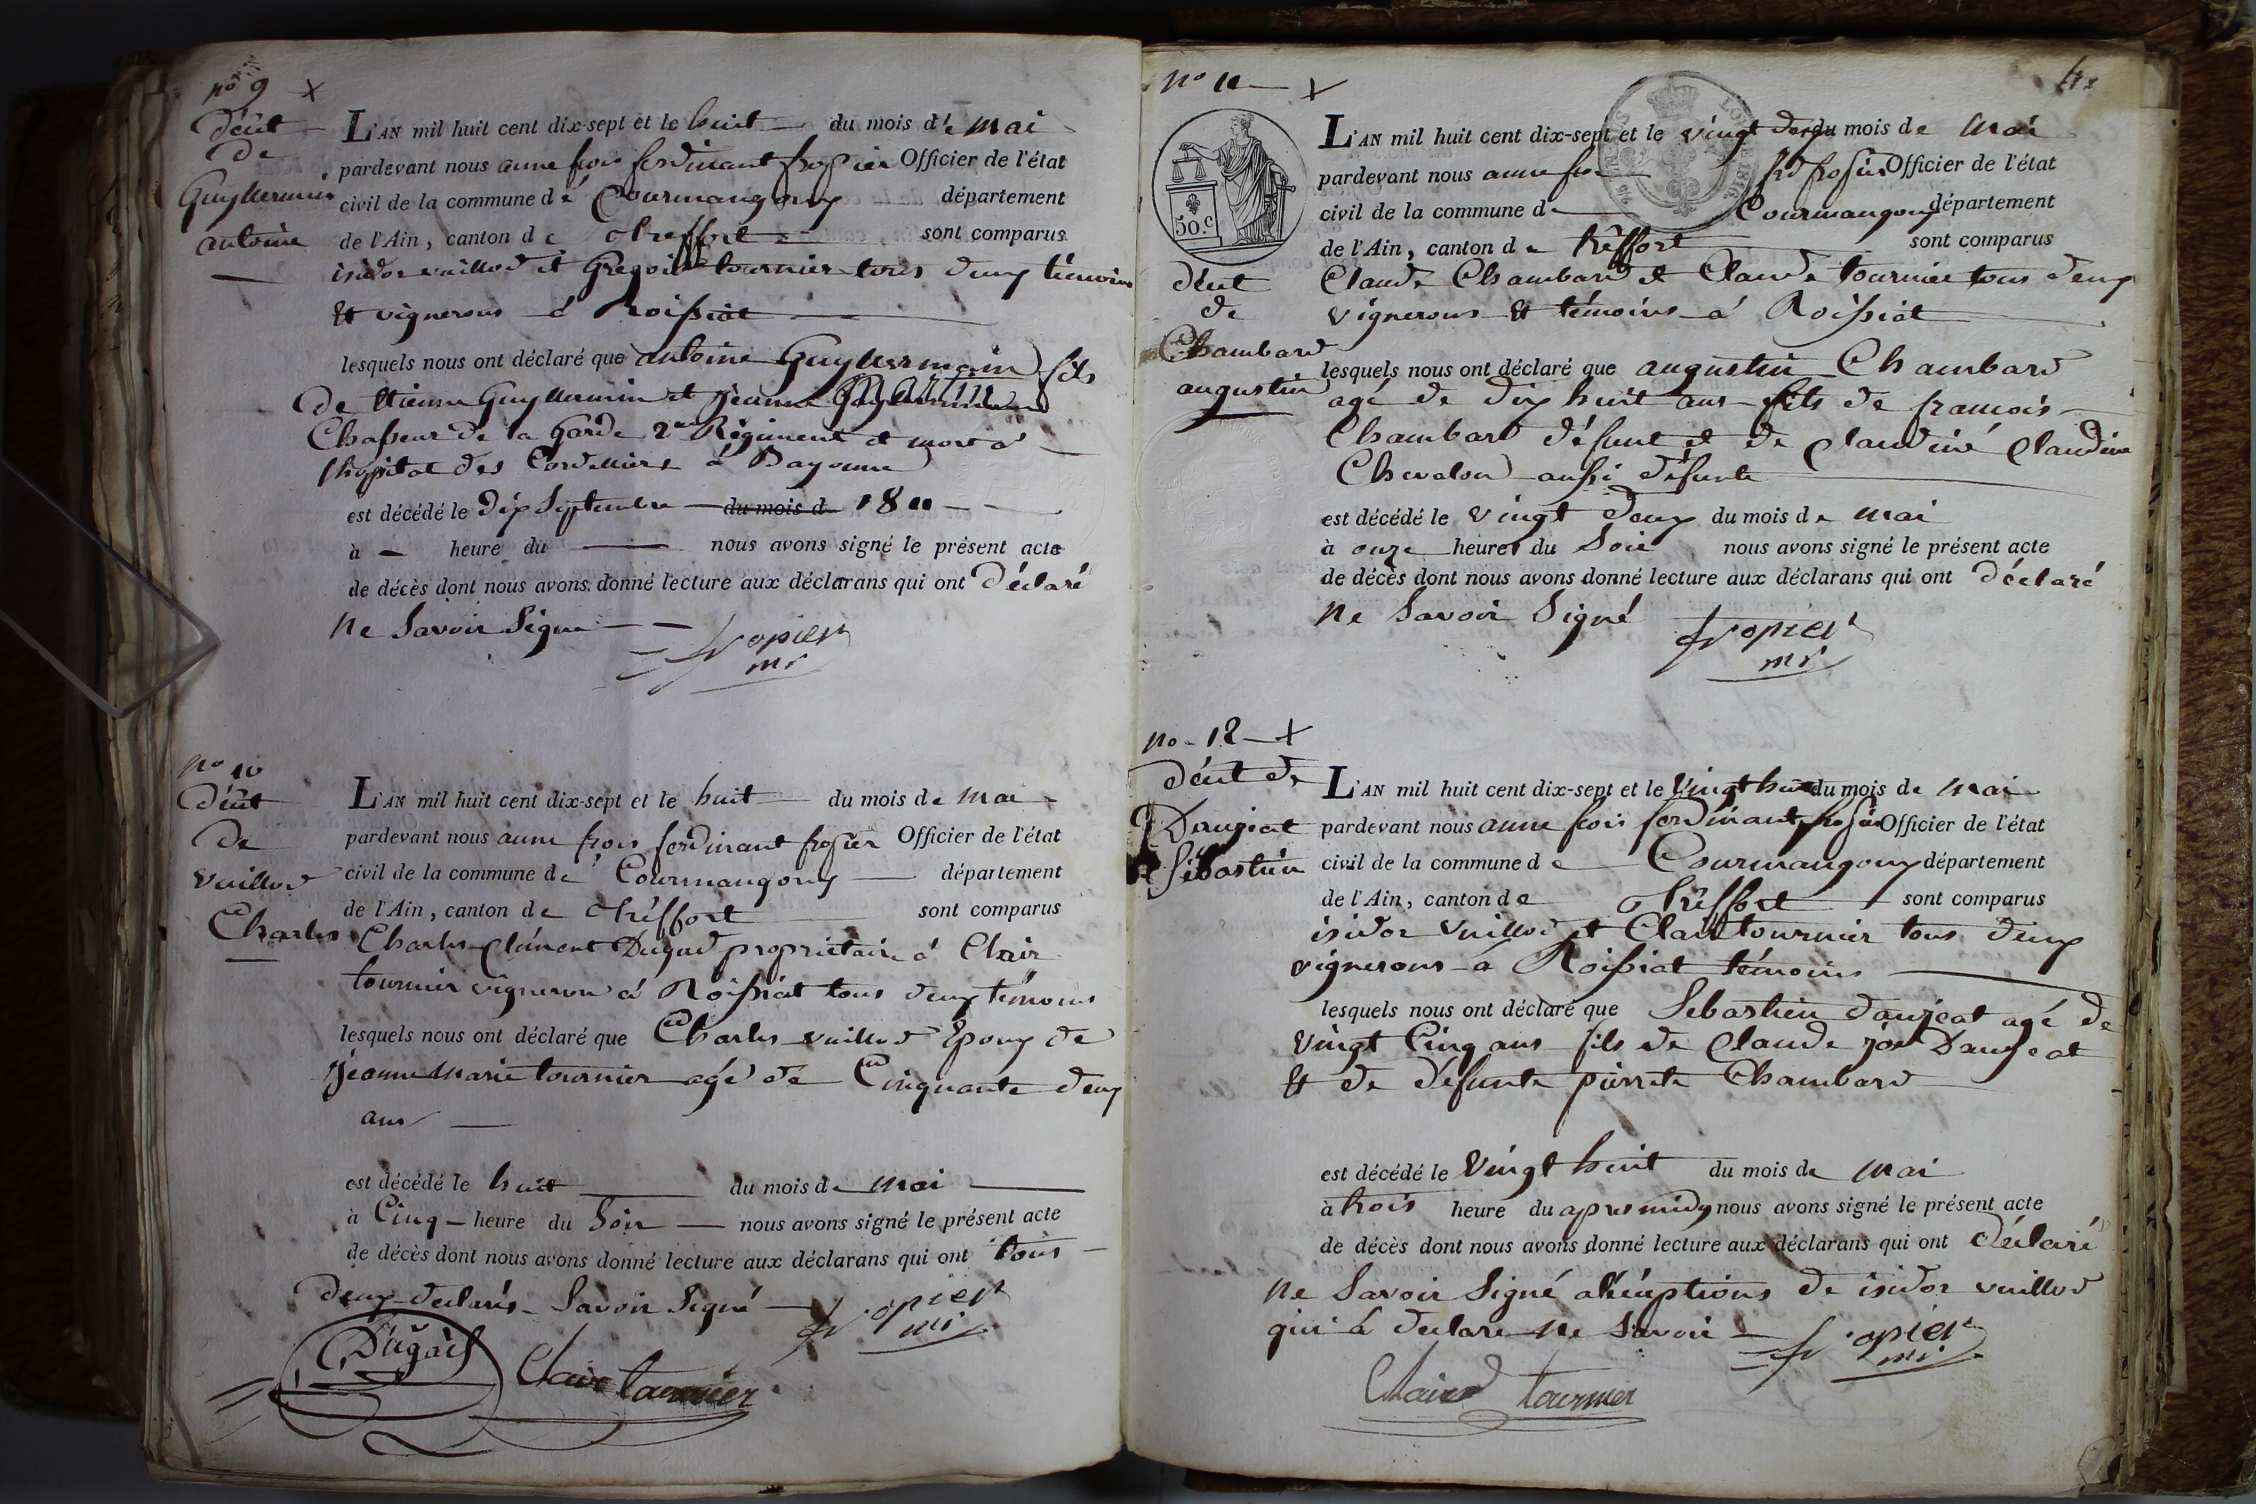 no 9
décét
de
Guyllermin
antoine
L'AN mil huit cent dix-sept et le huit du mois de Mai
pardevant nous anne frois ferdinant fropier Officier de l'état
civil de la commune de Courmangoux département
de l'Ain, canton de treffort sont comparus
isidor vuillod et Gregoire tournier tous deux témoins
et vignerons à Roissiat
lesquels nous ont déclaré que antoine Guyllermin fils
de Etienne Guyllermin et jeanne
Chasseur de la Garde 2me Régiment et mort à
lhopital des Cordelliers à Bayonne
est décédé le dix Septembre du mois d 1811
à heure du nous avons signé le présent acte
de décès dont nous avons donné lecture aux déclarans qui ont déclaré
ne Savoir Signé
fropier
mr
no 10
décét
de
vuillod
Charles
L'AN mil huit cent dix-sept et le huit du mois de Mai
pardevant nous anne frois ferdinant fropier Officier de l'état
civil de la commune de Courmangoux département
de l'Ain, canton de treffort sont comparus
Charles Clément Dugad propriétaire à Clair
tournier vigneron à Roissiat tous deux témoins
lesquels nous ont déclaré que Charles vuillod Epoux de
jeanne Marie tournier agé de Cinquante deux
ans
est décédé le huit du mois de mai
à Cinq heure du Soir nous avons signé le présent acte
de décès dont nous avons donné lecture aux déclarans qui ont tous
deux declarés Savoir Signé
fropier
mr
Dugad
Claire tournier
no 11
50.c
décét
de
Chambard
augustin
L'AN mil huit cent dix-sept et le vingt deux du mois de Mai
pardevant nous anne frs fd fropier Officier de l'état
civil de la commune d Courmangoux département
de l'Ain, canton de tréffort sont comparus
Claude Chambard et Claude tournier tous deux
vignerons et témoins à Roissiat
lesquels nous ont déclaré que augustin Chambard
agé de dix huit ans fils de francois
Chambard défunt et de Claudine Claudine
Chevalon aussi défunte
est décédé le vingt deux du mois de mai
à onze heures du Soir nous avons signé le présent acte
de décès dont nous avons donné lecture aux déclarans qui ont déclaré
ne Savoir Signé
fropier
mr
no 12
décét de
Daujeat
Sébastien
L'AN mil huit cent dix-sept et le Vingt huit du mois de Mai
pardevant nous anne frois ferdinant fropier Officier de l'état
civil de la commune de Courmangoux département
de l'Ain, canton de tréffort sont comparus
isidor vuillod et Clair tournier tous deux
vignerons à Roissiat témoins
lesquels nous ont déclaré que Sebastien daujeat agé de
vingt Cinq ans fils de Claude Daujeat
et de défunte pierrete Chambard
est décédé le Vingt huit du mois de mai
à trois heure du apres midy nous avons signé le présent acte
de décès dont nous avons donné lecture aux déclarans qui ont déclaré
ne Savoir Signé de isidor vuillod
qui à declare ne savoir
fropier
mr
Claire tournier